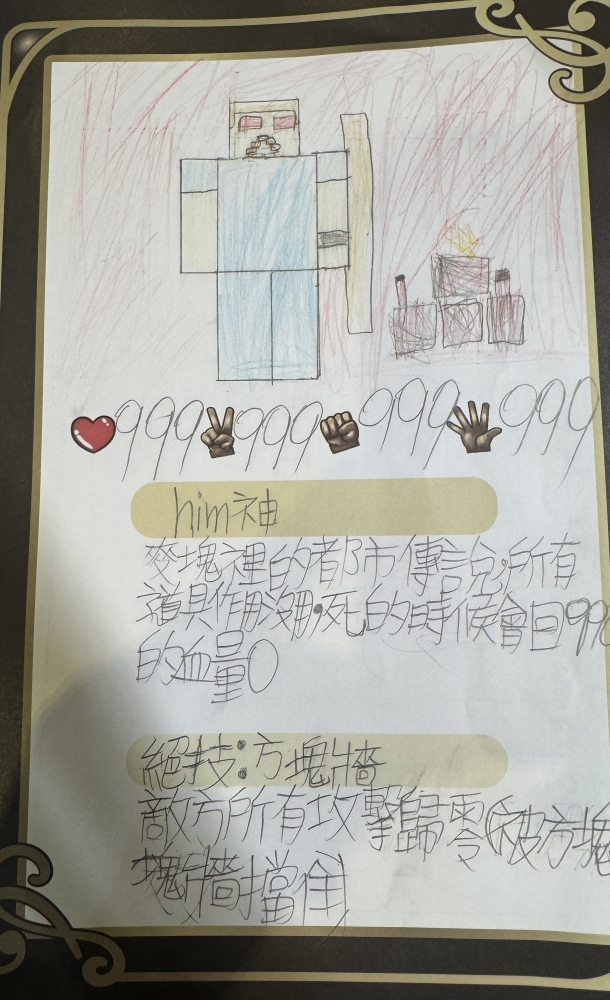 999 999 999 999
him神
麥塊裡的都市傳說,所有
道具作用沒用,死的時候會回999
的血量。
絕技:方塊牆
敵方所有攻擊歸零(被方塊
塊牆擋住)